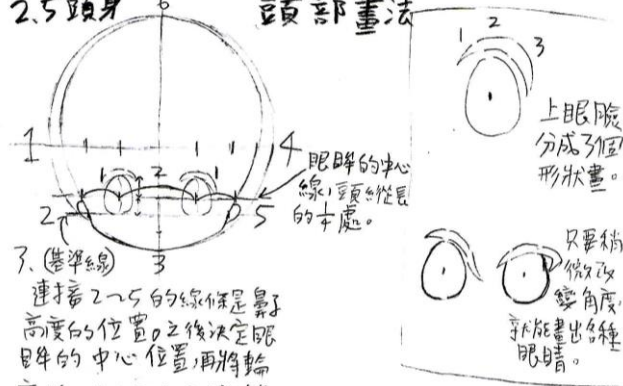 2.5頭身
頭部畫法
6
1
4
2
5
3
1
2
1
眼眸的中心
線，頭縱長
的1/4處。
3、(基準線)
連接2~5的線條是鼻子
高度的位置。之後決定眼
眸的中心位置，再將輪
1 2 3
上眼臉
分成3個
形狀畫。
只要稍
微改
變角度，
就能畫出各種
眼睛。